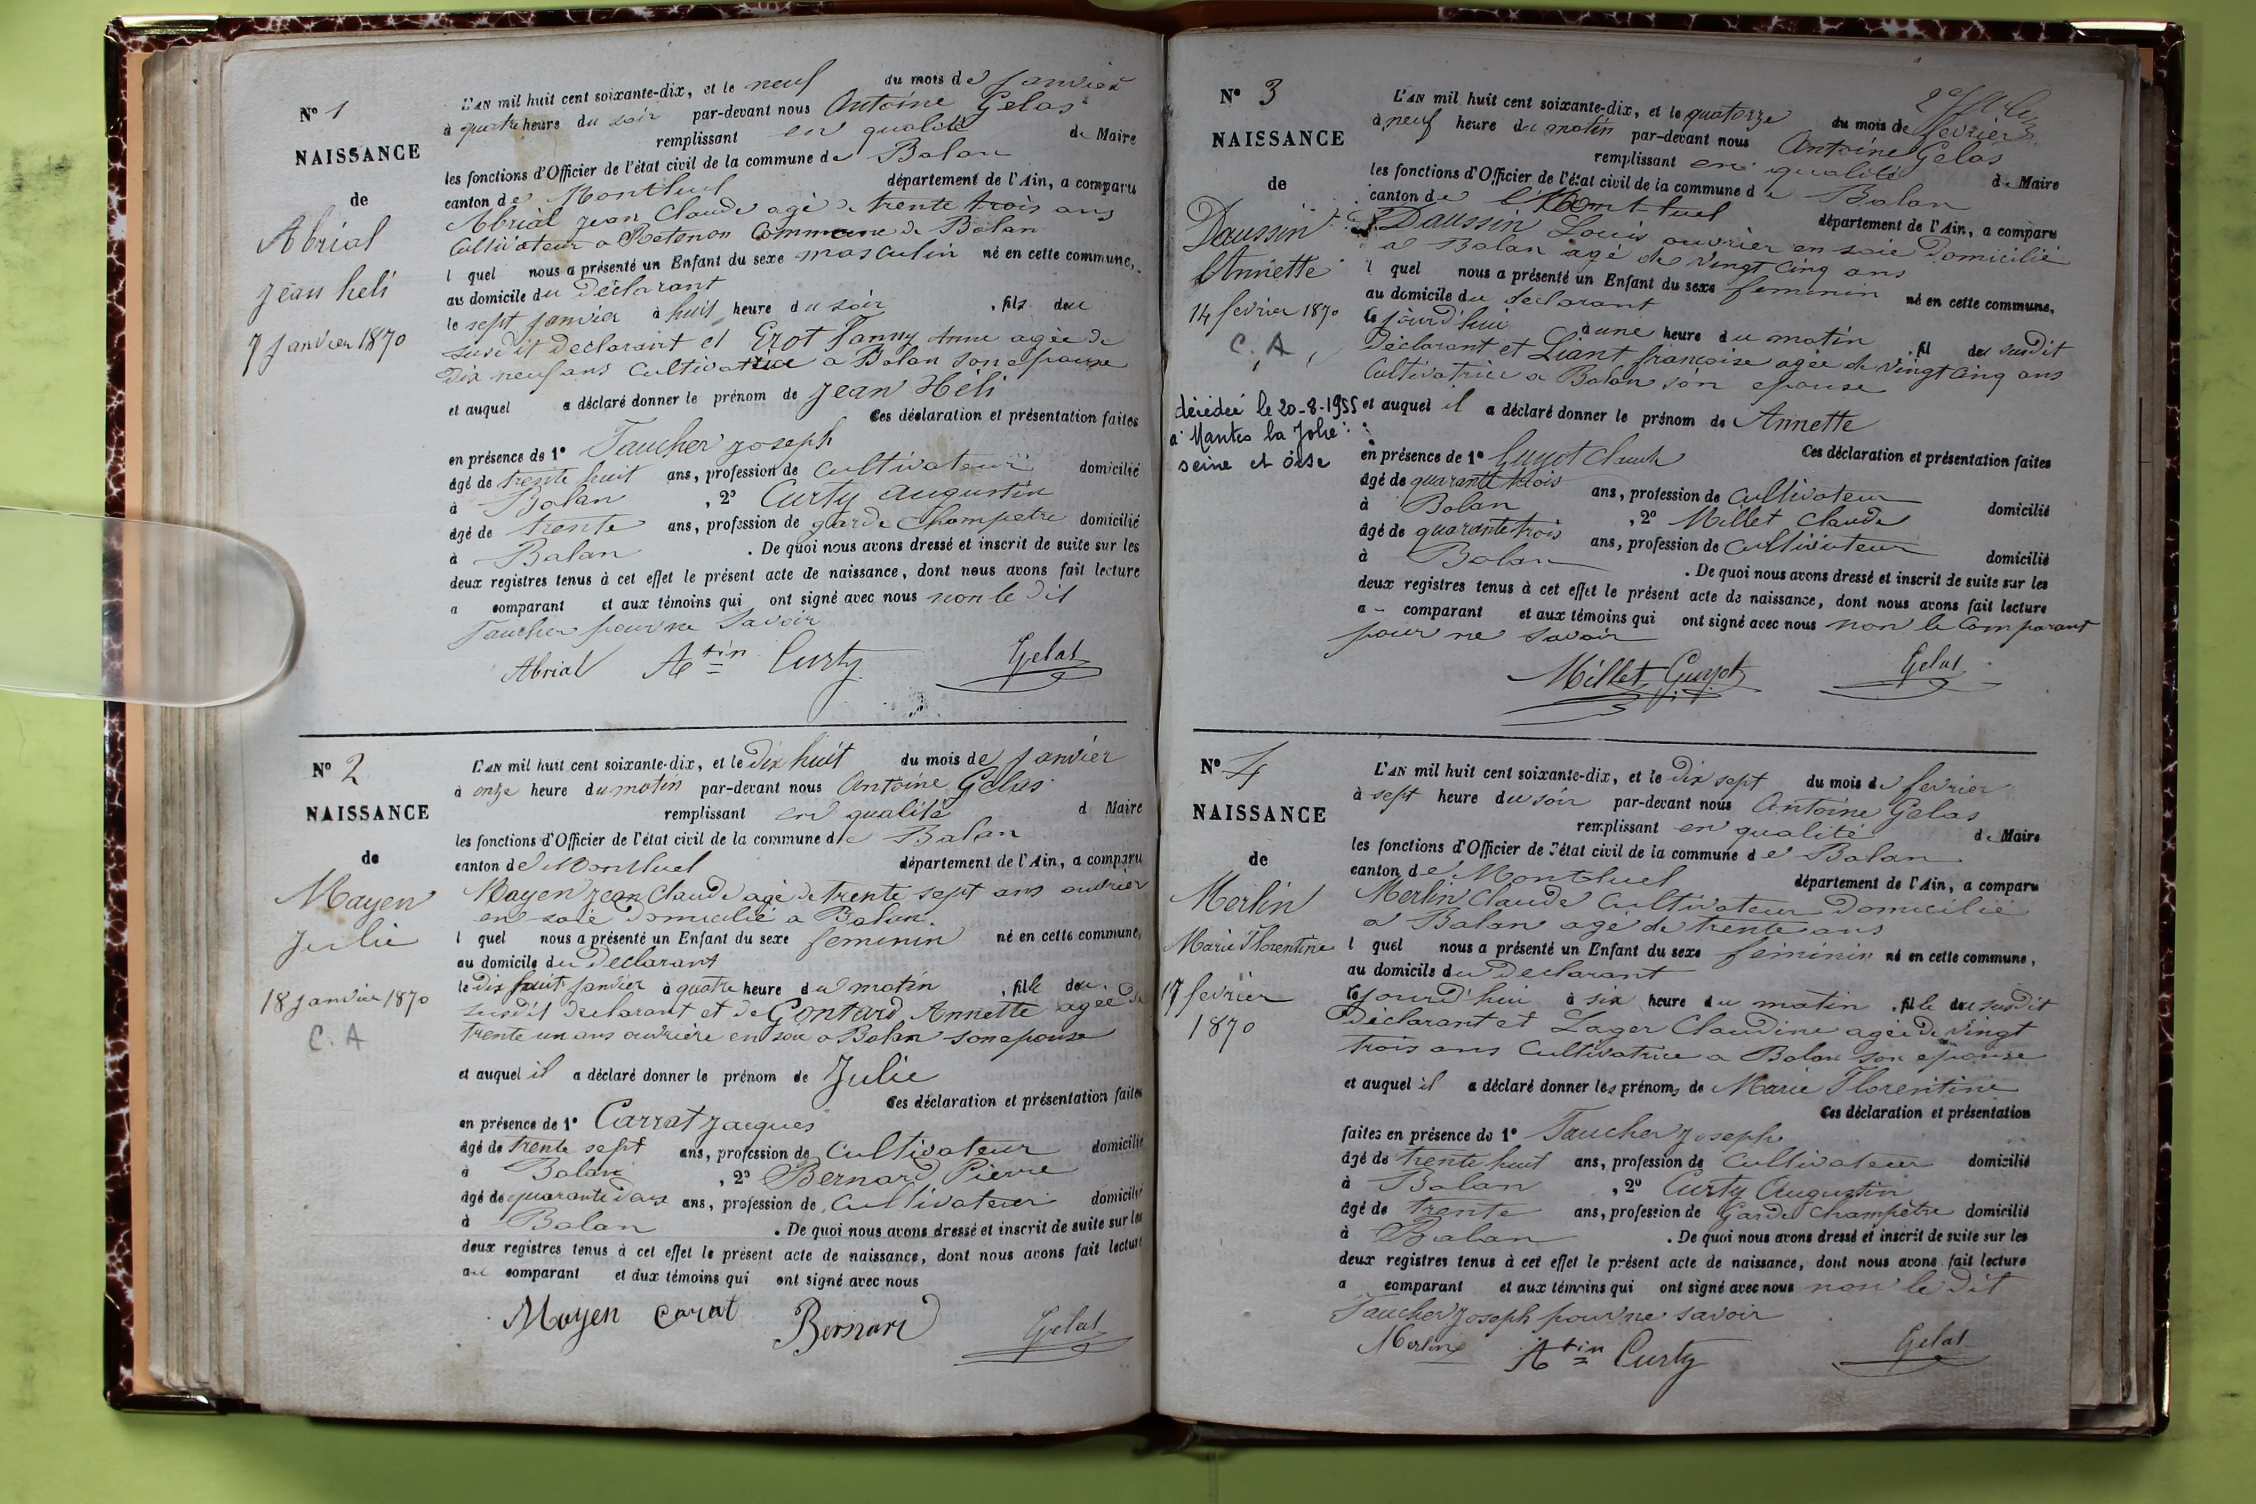 N° 1
NAISSANCE
de
Abrial
jean heli
7 janvier 1870
L'AN mil huit cent soixante-dix, et le neuf du mois de janvier
à quatre heure du soir par-devant nous Antoine Gelas
remplissant en qualité de Maire
les fonctions d'Officier de l'état civil de la commune de Balan
canton de Montluel département de l'Ain, a comparu
Abrial jean Claude agé de trente trois ans
Cultivateur a Commune de Balan
l quel nous a présenté un Enfant du sexe masculin né en cette commune,
au domicile du Déclarant
le sept janvier à huit heure du soir , fils du
susdit declarant et Erot Fanny Anne agée de
dix neuf ans Cultivatrice a Balan son epouse
et auquel a déclaré donner le prénom de jean Héli
Ces déclaration et présentation faites
en présence de 1° Faucher joseph
âgé de trente huit ans, profession de Cultivateur domicilié
à Balan , 2° Curty augustin
âgé de trente ans, profession de garde Champetre domicilié
à Balan . De quoi nous avons dressé et inscrit de suite sur les
deux registres tenus à cet effet le présent acte de naissance, dont nous avons fait lecture
a comparant et aux témoins qui ont signé avec nous non le dit
Faucher pour ne Savoir
Abrial Atin Curty Gelas
N° 2
NAISSANCE
de
Mayen
Julie
18 janvier 1870
C. A
L'AN mil huit cent soixante-dix, et le dix huit du mois de janvier
à onze heure du matin par-devant nous Antoine Gelas
remplissant en qualité d Maire
les fonctions d'Officier de l'état civil de la commune de Balan
canton de Montluel département de l'Ain, a comparu
Mayen jean Claude agé de trente sept ans ouvrier
en soie domicilié a Balan
l quel nous a présenté un Enfant du sexe feminin né en cette commune,
au domicile du Declarant
le dix huit janvier à quatre heure du matin , fille du
susdit declarant et de Gontard Annette agée de
trente un ans ouvrière en soie a Balan son epouse
et auquel il a déclaré donner le prénom de Julie
Ces déclaration et présentation faites
en présence de 1° Carrat jacques
âgé de trente sept ans, profession de Cultivateur domicilié
à Balan , 2° Bernard Pierre
âgé de quarante ans, profession de Cultivateur domicilié
à Balan . De quoi nous avons dressé et inscrit de suite sur les
deux registres tenus à cet effet le présent acte de naissance, dont nous avons fait lecture
au comparant et aux témoins qui ont signé avec nous
Mayen Carat Bernard Gelas
N° 3
NAISSANCE
de
Daussin
Annette
14 fevrier 1870
C. A
décédée le 20-8-1955
a Mantes la Jolie
seine et oise
L'AN mil huit cent soixante-dix, et le quatorze du mois de fevrier
à neuf heure du matin par-devant nous Antoine Gelas
remplissant en qualité de Maire
les fonctions d'Officier de l'état civil de la commune de Balan
canton de Montluel département de l'Ain, a comparu
Daussin Louis ouvrier en soie Domicilié
a Balan agé de vingt cinq ans
l quel nous a présenté un Enfant du sexe feminin né en cette commune,
au domicile du declarant
le jourd'hui à une heure du matin , fil du susdit
Déclarant et Liant françoise agée de vingt cinq ans
Cultivatrice a Balan son epouse
et auquel il a déclaré donner le prénom de Annette
Ces déclaration et présentation faites
en présence de 1° Guyot Claude
âgé de quarante trois ans, profession de Cultivateur domicilié
à Balan , 2° Millet Claude
âgé de quarante trois ans, profession de Cultivateur domicilié
à Balan . De quoi nous avons dressé et inscrit de suite sur les
deux registres tenus à cet effet le présent acte de naissance, dont nous avons fait lecture
a comparant et aux témoins qui ont signé avec nous non le Comparant
pour ne savoir
Millet Guyot Gelas
N° 4
NAISSANCE
de
Merlin
Marie Florentine
17 fevrier
1870
L'AN mil huit cent soixante-dix, et le dix sept du mois de fevrier
à sept heure du soir par-devant nous Antoine Gelas
remplissant en qualité de Maire
les fonctions d'Officier de l'état civil de la commune de Balan
canton de Montluel département de l'Ain, a comparu
Merlin Claude Cultivateur Domicilié
a Balan agé de trente ans
l quel nous a présenté un Enfant du sexe feminin né en cette commune,
au domicile du Declarant
le jourd'hui à six heure du matin , fille du susdit
Déclarant et Lager Claudine agée de vingt
trois ans Cultivatrice a Balan son epouse
et auquel il a déclaré donner les prénoms de Marie Florentine
Ces déclaration et présentation
faites en présence de 1° Faucher joseph
âgé de trente huit ans, profession de Cultivateur domicilié
à Balan , 2° Curty Augustin
âgé de trente ans, profession de Garde champêtre domicilié
à Balan . De quoi nous avons dressé et inscrit de suite sur les
deux registres tenus à cet effet le présent acte de naissance, dont nous avons fait lecture
a comparant et aux témoins qui ont signé avec nous non le dit
Faucher joseph pour ne savoir
Merlin Atin Curty Gelas